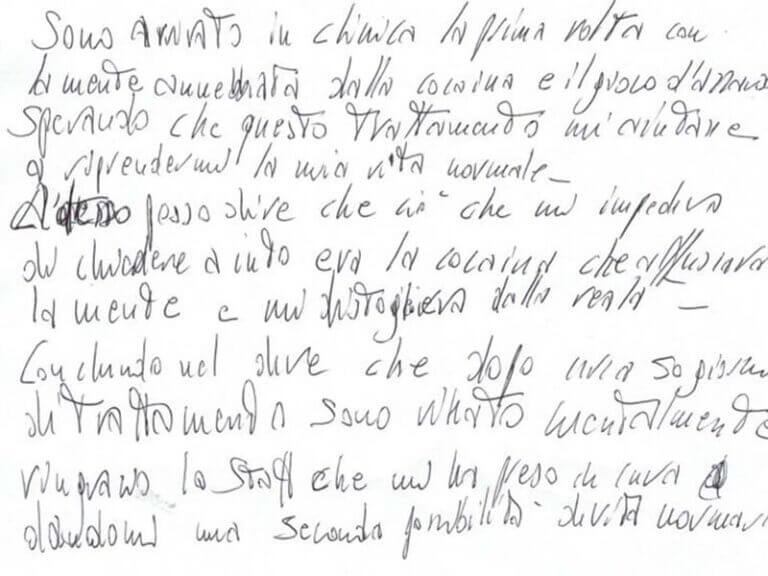 Sono arrivato in clinica la prima volta con
la mente annebbiata dalla cocaina e il gioco d'azzardo
Sperando che questo trattamento mi aiutare
a riprendermi la mia vita normale_
posso dire che ciò che mi impediva
di chiedere aiuto era la cocaina che offuscava
la mente e mi distoglieva dalla realtà_
Concludo nel dire che dopo una
di trattamento sono mentalmente
ringrazio lo staff che mi ha preso in cura
dandomi una seconda possibilità di vita